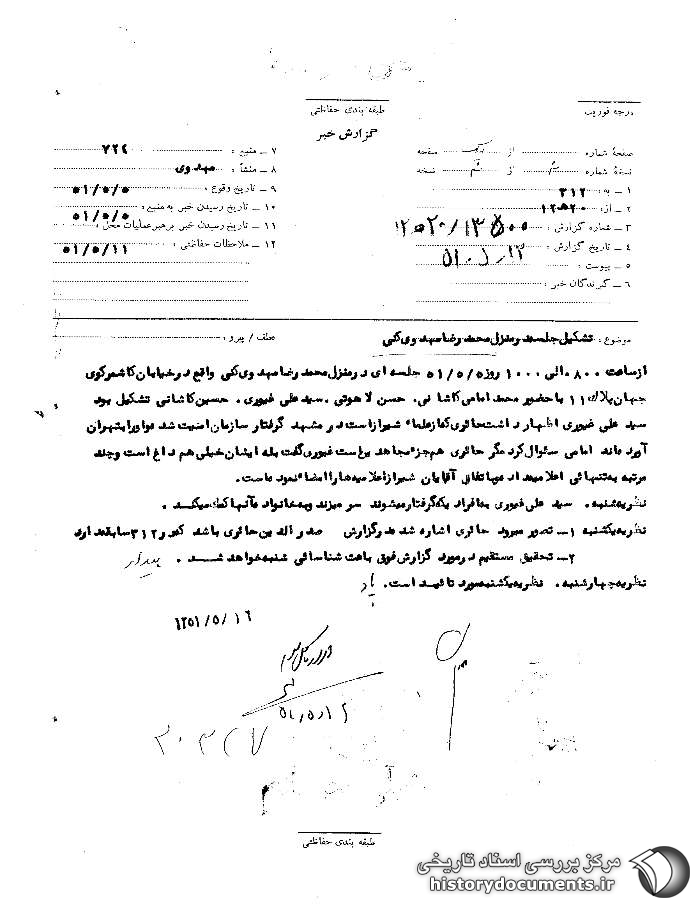 درجه فوریت
طبقه بندی حفاظتی
گزارش خبر
صفحه شماره : از یک صفحه
نسخه شماره : از نسخه
۱ - به : ۳۱۲
۲ - از : ۱۲ه۲۰
۳ - شماره گزارش : ۱۲ه۲۰/۱۳۵۰۰
۴ - تاریخ گزارش :
۵ - پیوست :
۶ - گیرندگان خبر :
۷ - منبع : ۷۲۴
۸ - منشأ : مهدوی
۹ - تاریخ وقوع : ۵۱/۵/۵
۱۰ - تاریخ رسیدن خبر به منبع :
۱۱ - تاریخ رسیدن خبر برهبر عملیات محل : ۵۱/۵/۵
۱۲ - ملاحظات حفاظتی : ۵۱/۵/۱۱
موضوع : تشکیل جلسه در منزل محمد رضا مهدوی کنی
عطف / پیرو :
از ساعت ۸۰۰ الی ۱۰۰۰ روز ۵۱/۵/۵ جلسه ای در منزل محمد رضا مهدوی کنی واقع در خیابان کاشمر کوی
جهان پلاک ۱۱ با حضور محمد امامی کاشانی. حسن لاهوتی. سید علی غیوری. حسین کاشانی تشکیل بود
سید علی غیوری اظهار داشت حائری که از علماء شیراز است در مشهد گرفتار سازمان امنیت شده و او را بتهران
آورده اند امامی سئوال کرد مگر حائری هم جزء مجاهدین است غیوری گفت بله ایشان خیلی هم داغ است و چند
مرتبه به تنهائی اعلامیه داده و باتفاق آقایان شیراز اعلامیه ها را امضاء نموده است.
نظریه شنبه. سید علی غیوری به افرادیکه گرفتار میشوند سر میزند و به خانواده آنها کمک میکند.
نظریه یکشنبه ۱- تصور میرود حائری اشاره شده در گزارش صدرالدین حائری باشد که در ۳۱۲ سابقه دارد
۲- تحقیق مستقیم در مورد گزارش فوق باعث شناسائی شنبه خواهد شد.
نظریه چهارشنبه. نظریه یکشنبه مورد تائید است.
۱۳۵۱/۵/۱۶
طبقه بندی حفاظتی
مرکز بررسی اسناد تاریخی
historydocuments.ir